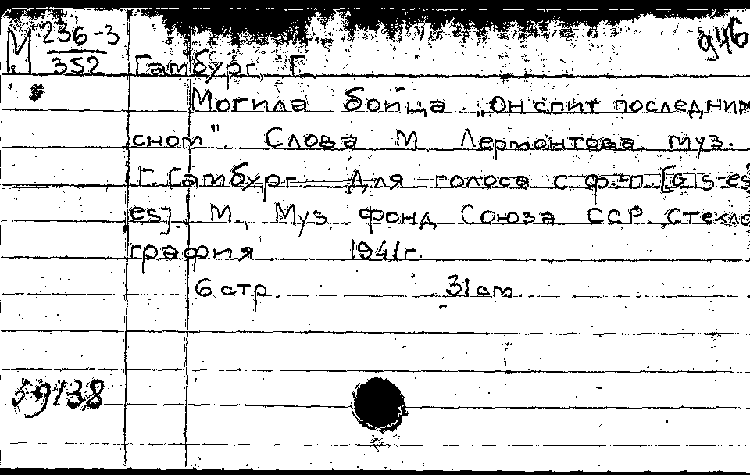 М 236-3
352
946
Гамбург, Г.
Могила бойца „Он спит последним
сном". Слова М. Лермонтова муз.
Г. Гамбург. Для голоса с ф-п. [dis-es
es]. М., Муз фонд Союза ССР. Стекло
графия 1941г.
6 стр. 31 см
39138